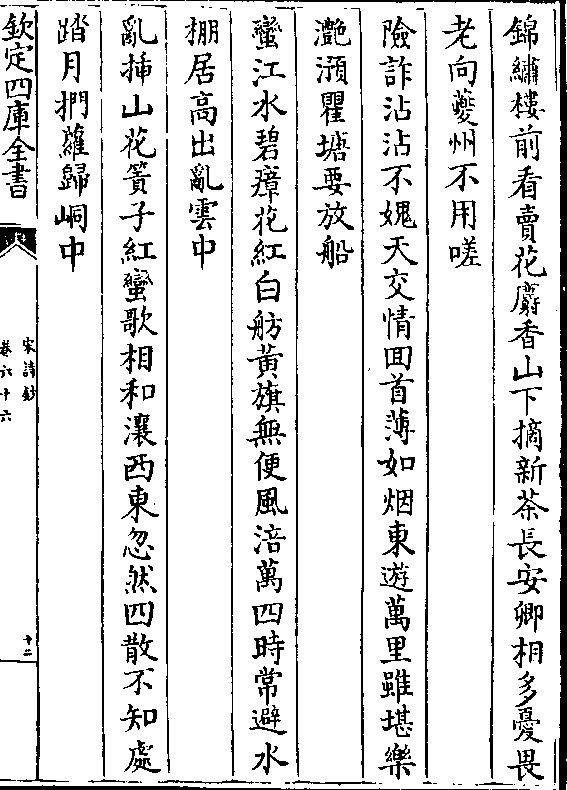 錦繡樓前看賣花麝香山下摘新茶長安卿相多憂畏
老向夔州不用嗟
險詐沾沾不媿天交情回首薄如烟東遊萬里雖堪樂
灔澦瞿塘要放船
蠻江水碧瘴花紅白舫黃旗無便風涪萬四時常避水
棚居高出亂雲中
亂揷山花簣子紅蠻歌相和瀼西東忽然四散不知處
踏月捫蘿歸峒中
欽定四庫全書
宋詩鈔
卷六十六
十二